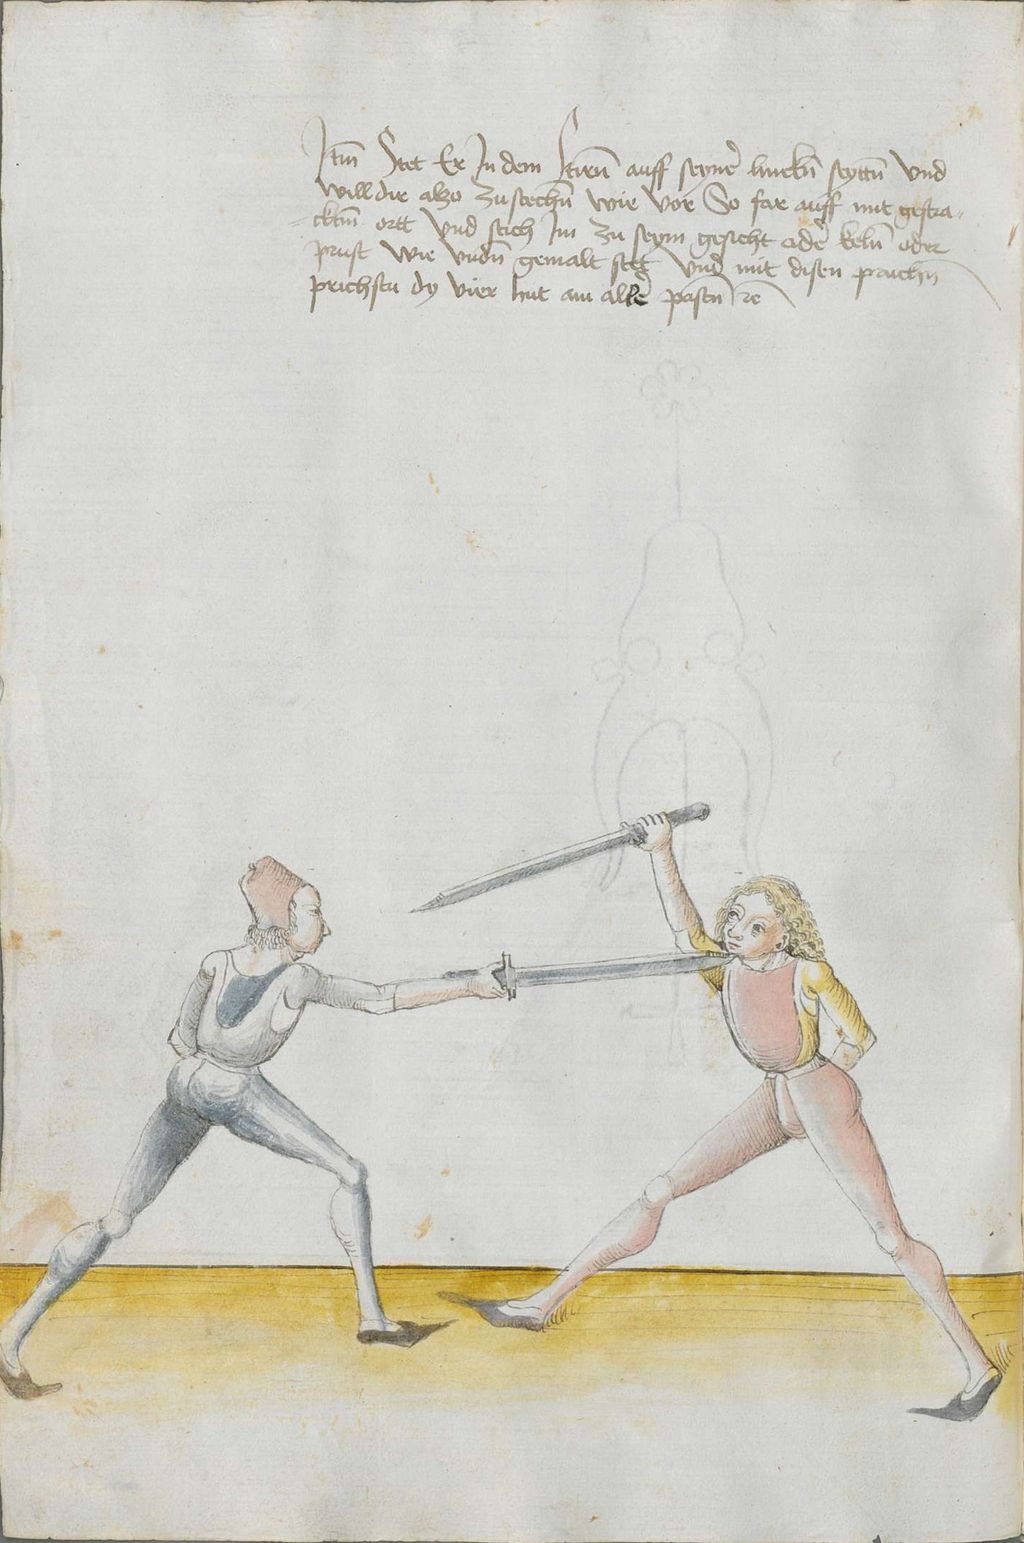 Itm Stet Er In dem Stirn̄ auff seyner lincktn̄ seyttn̄ Vnd
will dir also zu stechn̄ wie vor So far auff mit gestra-
-cktm̄ ortt Vnd stich Im zu seym gesicht oder keln̄ oder
prust wie vndn̄ gemalt stet vnd mit disen pruchn̄
prichstu dy vier hut am alle pastn̄ re